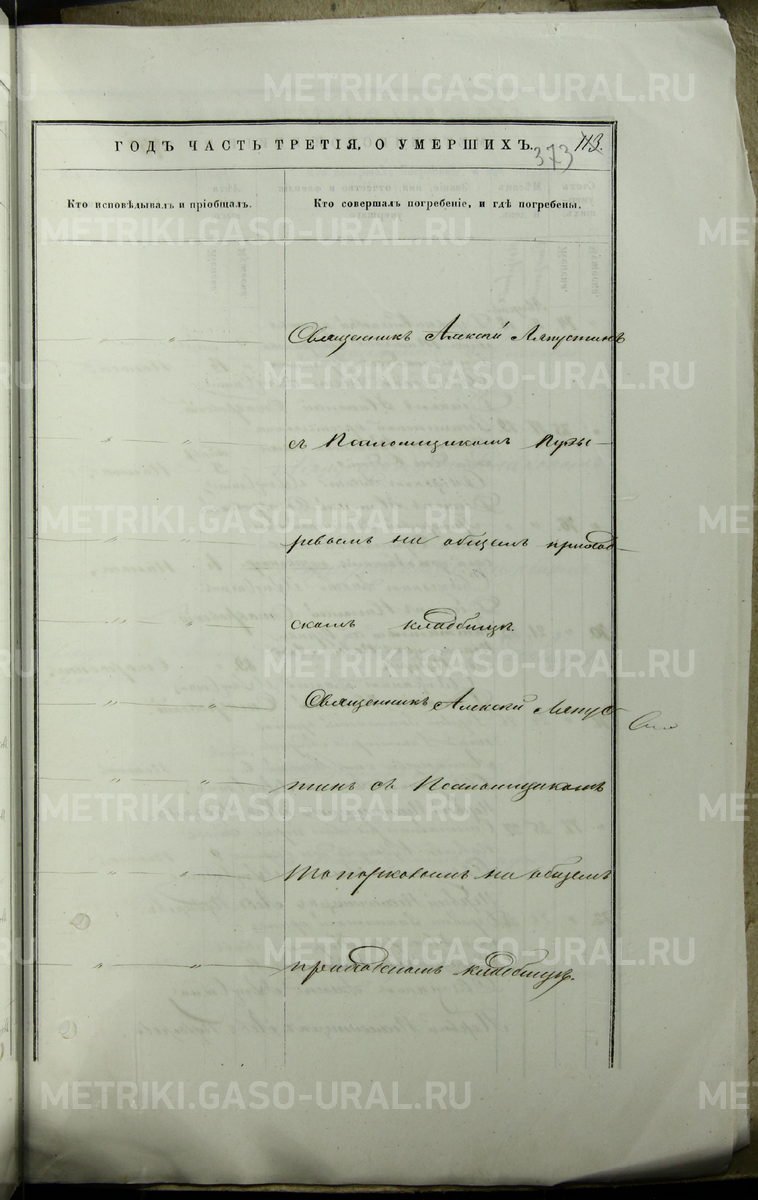 ГОДЪ ЧАСТЬ ТРЕТІЯ, О УМЕРШИХЪ.
373 113.
Кто исповѣдывалъ и пріобщалъ.
Кто совершалъ погребеніе, и гдѣ погребены.
Священникъ Алексій Ляпустинъ
съ Псаломщикомъ
на общемъ приход-
скомъ кладбищѣ.
Священникъ Алексій Ляпус-
тинъ съ Псаломщикомъ
Топорковымъ на общемъ
приходскомъ кладбищѣ.
METRIKI.GASO-URAL.RU
METRIKI.GASO-URAL.RU
METRIKI.GASO-URAL.RU
METRIKI.GASO-URAL.RU
METRIKI.GASO-URAL.RU
METRIKI.GASO-URAL.RU
METRIKI.GASO-URAL.RU
METRIKI.GASO-URAL.RU